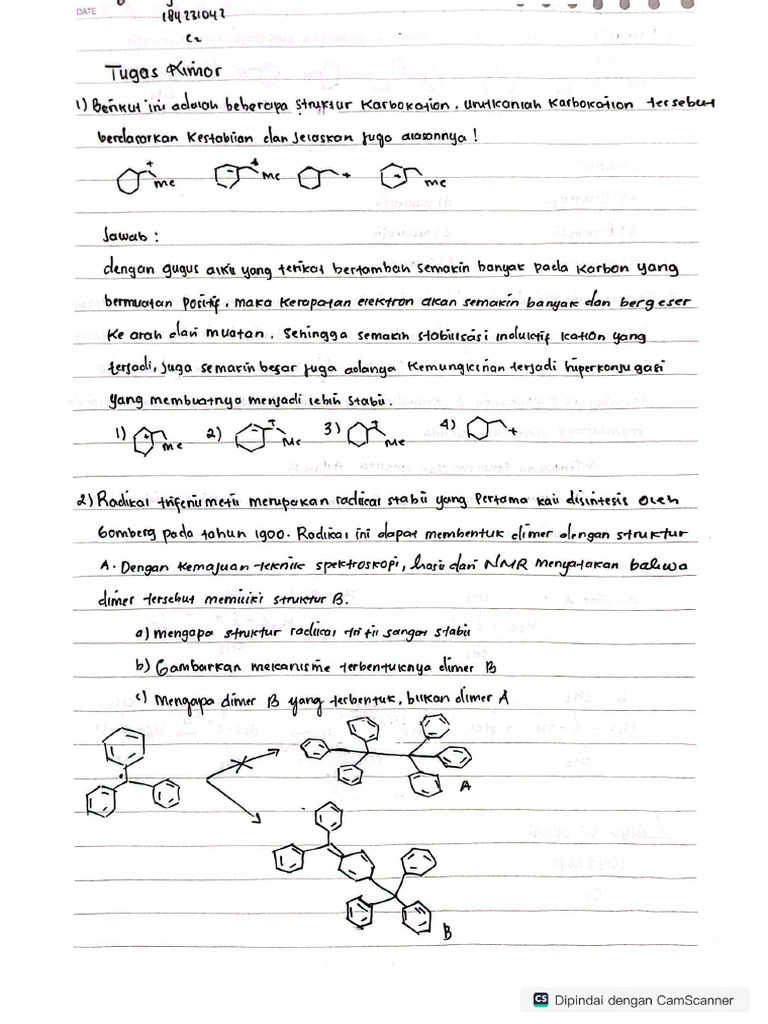 DATE
184231042
C2
Tugas Kimor
1) Berikut ini adalah beberapa struktur Karbokation. Urutkanlah Karbokation tersebut
berdasarkan Kestabilan dan jelaskan juga alasannya!
+ me + me + + me
Jawab :
dengan gugus alkil yang terikat bertambah semakin banyak pada Karbon yang
bermuatan positif, maka Kerapatan elektron akan semakin banyak dan bergeser
Ke arah dari muatan. Sehingga semakin stabilisasi induktif kation yang
terjadi, juga semakin besar juga adanya Kemungkinan terjadi hiperkonjugasi
yang membuatnya menjadi lebih stabil.
1) + me 2) + Me 3) + Me 4) +
2) Radikal trifenilmetil merupakan radikal stabil yang Pertama kali disintesis oleh
Gomberg pada tahun 1900. Radikal ini dapat membentuk dimer dengan struktur
A. Dengan Kemajuan teknik spektroskopi, hasil dari NMR menyatakan bahwa
dimer tersebut memiliki struktur B.
a) mengapa struktur radikal tritil sangat stabil
b) Gambarkan mekanisme terbentuknya dimer B
c) Mengapa dimer B yang terbentuk, bukan dimer A
A
B
CS Dipindai dengan CamScanner